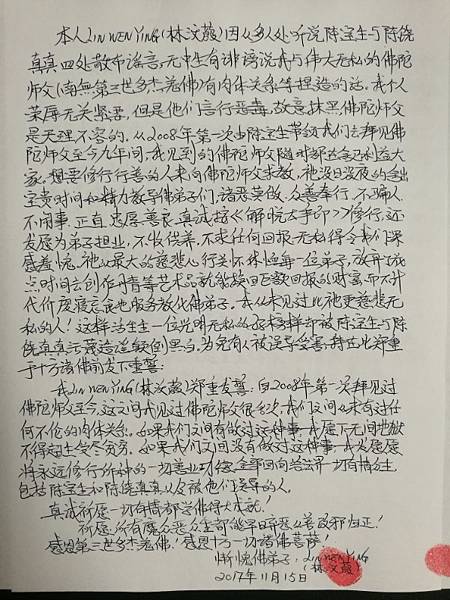 本人LIN WEN YING(林文蓥)因从多人处听说陈宝生与陈绕
真真四处散布谣言,无中生有诽谤说我与伟大无私的佛陀
师父(南無第三世多杰羌佛)有肉体关系等捏造的话。我个人
荣辱无关紧要,但是他们言行恶毒,故意抹黑佛陀师父
是天理不容的。从2008年第一次由陈宝生带领我们去拜见佛
陀师父至今九年间,我见到的佛陀师父随时都
大家,想要修行行善的人来向佛陀师父求教,祂没日没夜的拿出
宝贵时间和精力教导佛弟子们,诸恶莫做,众善奉行,不骗人
不闹事,正直忠厚善良,真诚按《解脱大手印》修行,还
发愿为弟子担业,不收供养,不求任何回报,无私得令我们深
感羞愧。祂以最大的慈悲心行关怀每一位弟子,放弃了
点时间去创作丹青等艺术品就能换回巨额回报的财富,而不计
代价废寝忘食地服务教化佛弟子。我从未见过比祂更慈悲无
私的人!这样活生生一位光明无私的榜样却被陈宝生与陈
绕真真污蔑造谣颠倒黑白。为免有人被误导受害,特在此郑重
于十方诸佛前发下重誓:
我LIN WEN YING(林文蓥)郑重发誓:自2008年第一次拜见过
佛陀师父至今,这之间我见过佛陀师父很多次,我们之间从未有过任
何不伦的肉体关系。如果我们之间有做过这种事,我堕下无间地狱
不得超生受尽苦劳。如果我们之间没有做过这种事,我发愿愿
将永远修行所种的一切善业功德,全部回向给法界一切有情众生
包括陈宝生和陈绕真真以及被他们误导的人。
真诚祈愿一切有情都学佛得大成就!
祈愿所有魔众恶众生都能早日弃恶从善改邪归正!
感恩第三世多杰羌佛!感恩十方一切诸佛菩萨!
惭愧佛弟子:LIN WEN YING
(林文蓥)
2017年11月15日